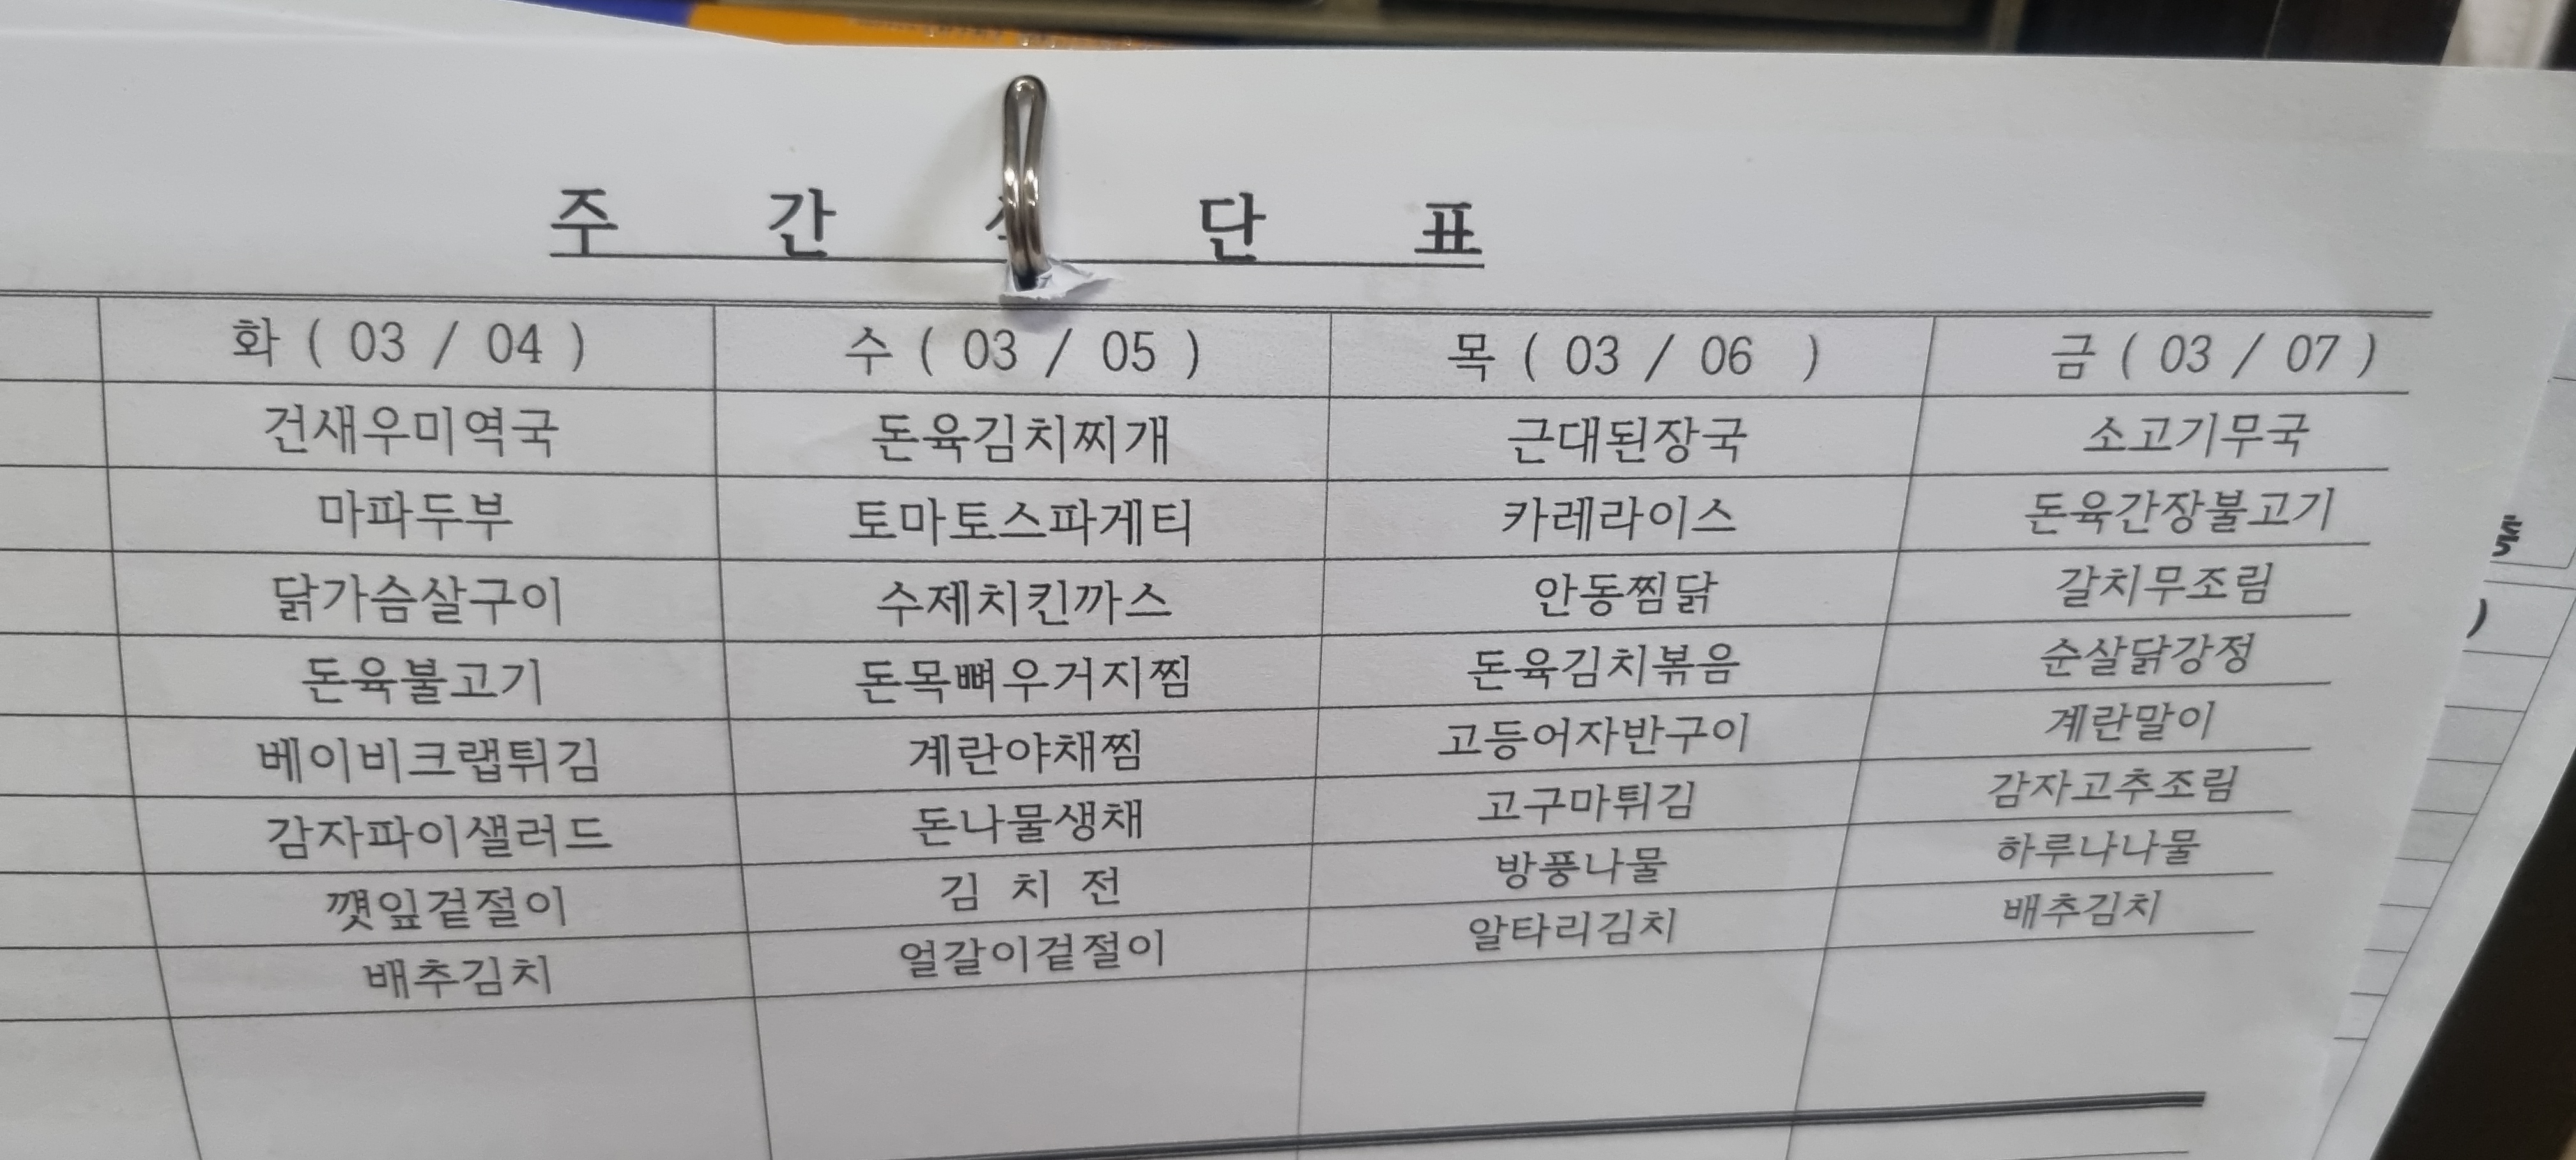 주 간 단 표
화 ( 03 / 04 ) 수 ( 03 / 05 ) 목 ( 03 / 06 ) 금 ( 03 / 07 )
건새우미역국 돈육김치찌개 근대된장국 소고기무국
마파두부 토마토스파게티 카레라이스 돈육간장불고기
닭가슴살구이 수제치킨까스 안동찜닭 갈치무조림
돈육불고기 돈목뼈우거지찜 돈육김치볶음 순살닭강정
베이비크랩튀김 계란야채찜 고등어자반구이 계란말이
감자파이샐러드 돈나물생채 고구마튀김 감자고추조림
깻잎겉절이 김 치 전 방풍나물 하루나나물
배추김치 얼갈이겉절이 알타리김치 배추김치
)